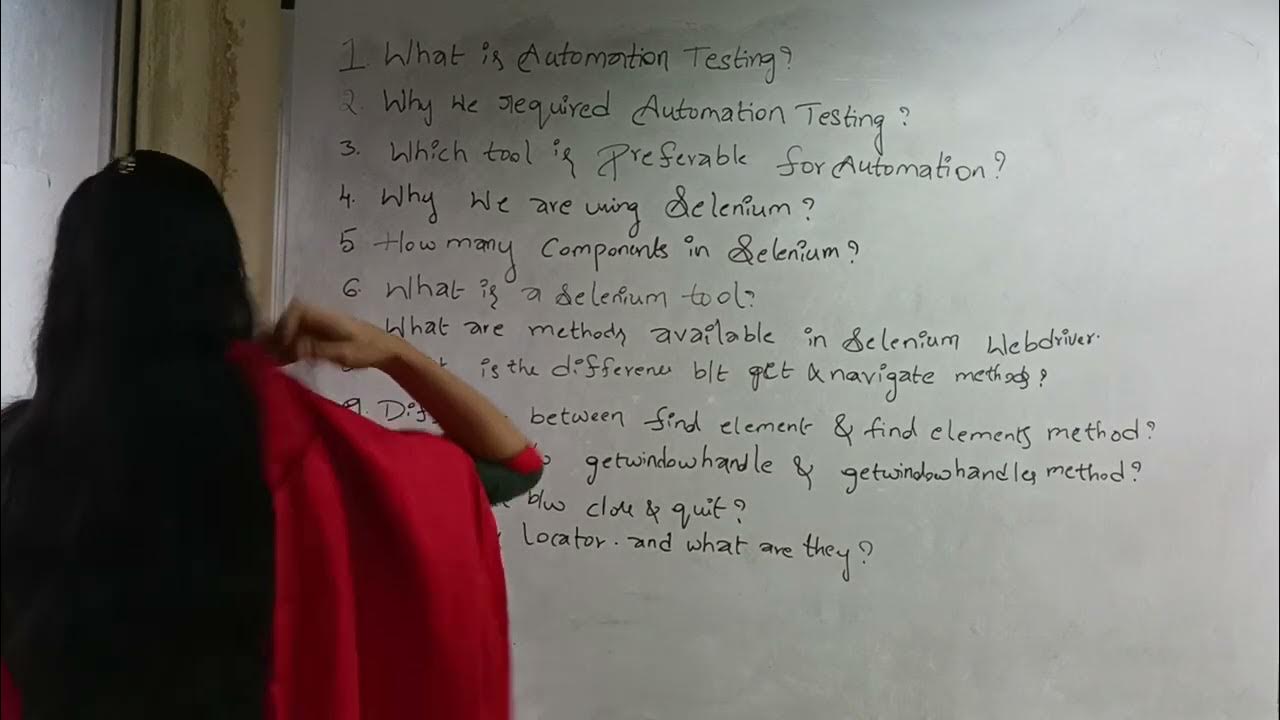 1. What is Automation Testing?
2. Why we required Automation Testing?
3. Which tool is preferable for Automation?
4. Why we are using Selenium?
5 How many components in Selenium?
6. What is a Selenium tool?
What are methods available in Selenium Webdriver.
is the difference b/t get & navigate methods?
9. between find element & find elements method?
getwindowhandle & getwindowhandles method?
b/w close & quit?
locator. and what are they?